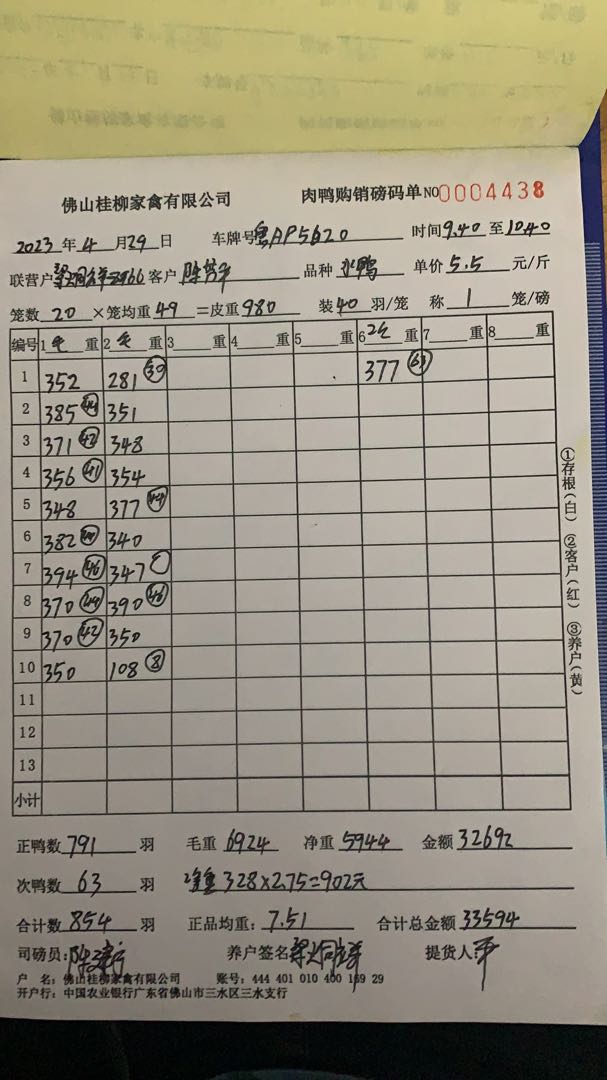 佛山桂柳家禽有限公司 肉鸭购销磅码单 NO 0004438
2023 年 4 月 29 日 车牌号 粤AP5620 时间 9.40 至 10.40
联营户 客户 品种 水鸭 单价 5.5 元/斤
笼数 20 ×笼均重 49 =皮重 980 装 40 羽/笼 称 1 笼/磅
编号 1 毛 重 2 毛 重 3 重 4 重 5 重 6 重 7 重 8 重
1 352 281 377 63
2 385 351
3 371 42 348
4 356 41 354
5 348 377 44
6 382 340
7 394 46 347
8 370 390
9 370 42 350
10 350 108 8
11
12
13
小计
①存根(白) ②客户(红) ③养户(黄)
正鸭数 791 羽 毛重 6924 净重 5944 金额 32692
次鸭数 63 羽 328×2.75=902元
合计数 854 羽 正品均重: 7.51 合计总金额 33594
司磅员: 养户签名 提货人:
户 名: 佛山桂柳家禽有限公司 账号: 444 401 010 400 169 29
开户行: 中国农业银行广东省佛山市三水区三水支行